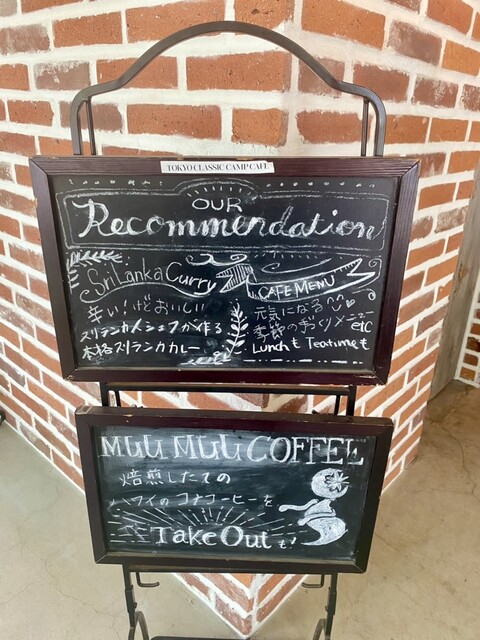 TOKYO CLASSIC CAMP CAFE
OUR
Recommendation
Sri Lanka Curry
辛い!けどおいしい
スリランカ人シェフが作る
本格スリランカカレー
CAFE MENU
元気になる
季節の手づくりメニュー
etc
Lunchも Teatimeも
MUU MUU COFFEE
焙煎したての
ハワイのコナコーヒーを
Take Outも!